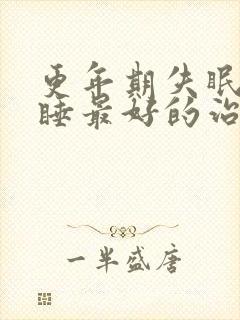 更年期失眠
睡最好的治
一半盛唐